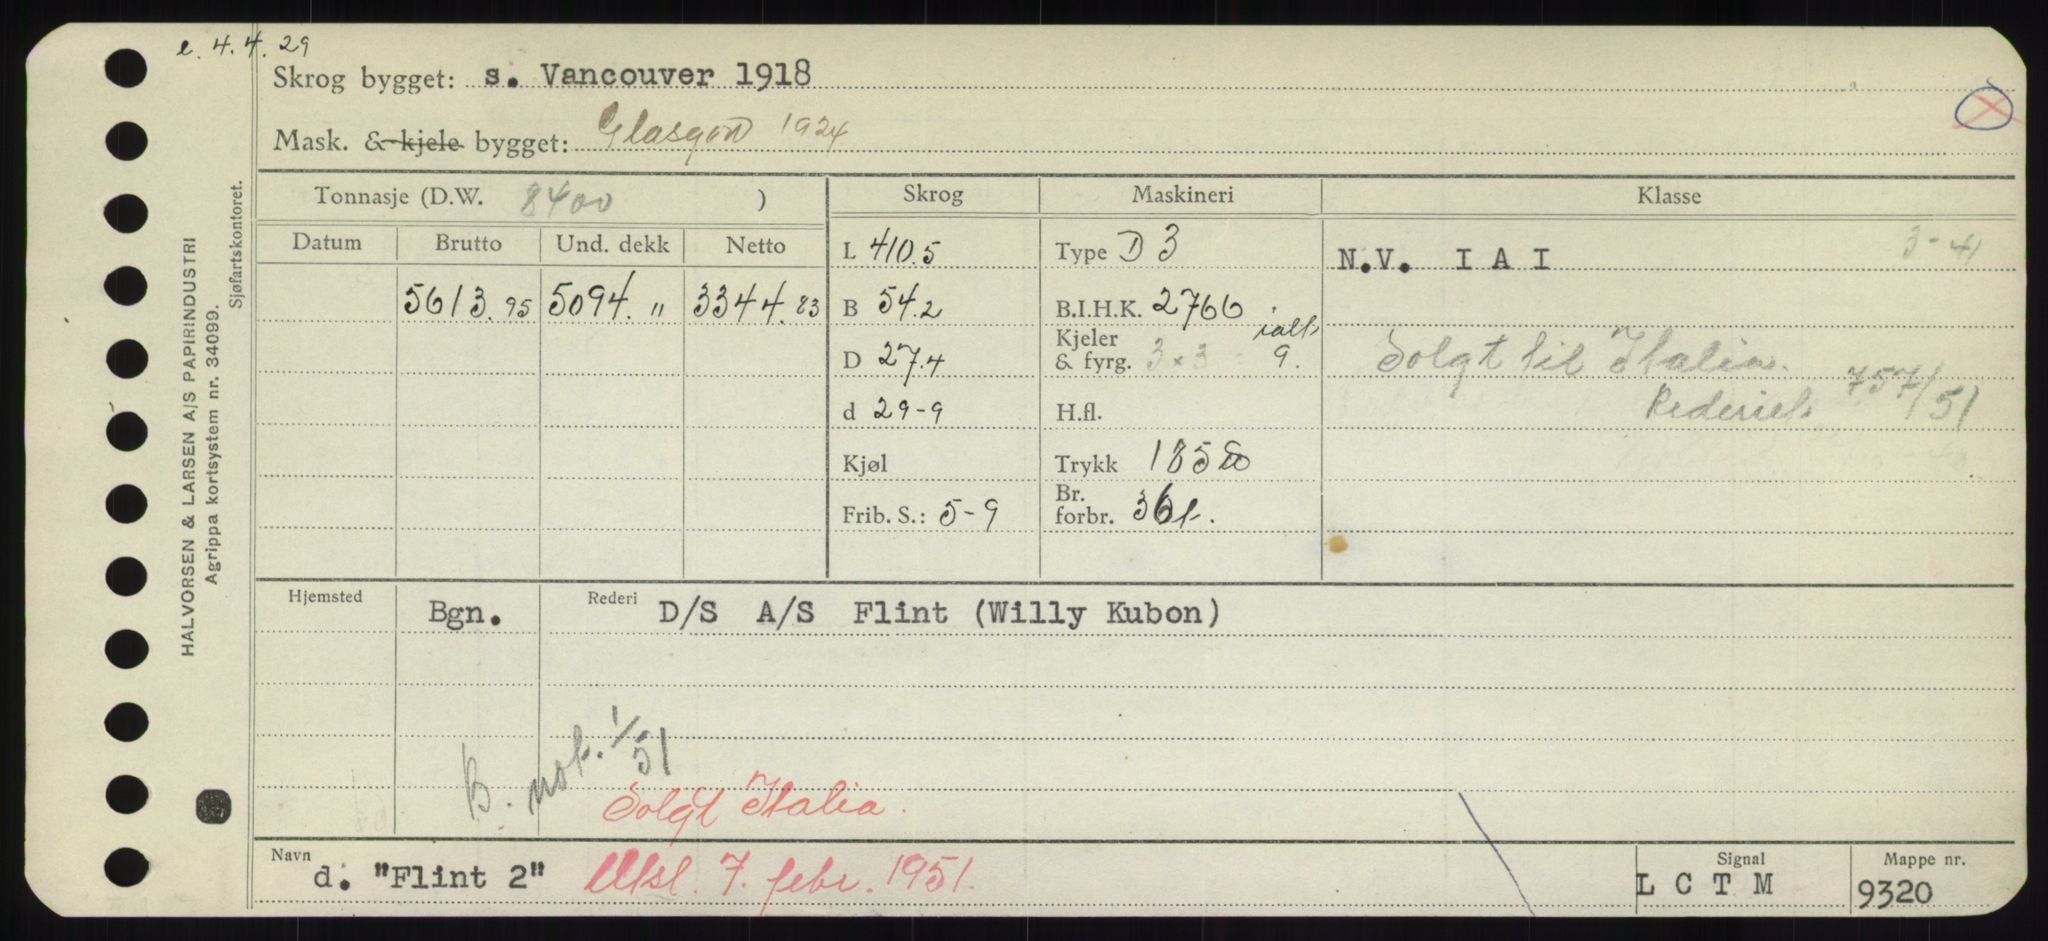 e. 4.4.29
Skrog bygget: s. Vancouver 1918
Mask. & kjele bygget: Glasgow 1924
Tonnasje (D.W. 8400 )
Skrog
Maskineri
Klasse
Datum Brutto Und. dekk Netto
5613.95 5094. " 3344.83
L 410.5
B 54.2
D 27.4
d 29-9
Kjøl
Frib. S.: 5-9
Type D 3
B.I.H.K. 2766
Kjeler & fyrg. 3x3 ialt 9.
H.fl.
Trykk 185
Br. forbr. 36 t.
3-41
N.V. I A I
Solgt til Italia.
Rederiet 757/51
Hjemsted Bgn. Rederi D/S A/S Flint (Willy Kubon)
B. not. 1/51
Solgt Italia.
Navn d. "Flint 2" Utsl. 7. febr. 1951.
Signal L C T M
Mappe nr. 9320
HALVORSEN & LARSEN A/S PAPIRINDUSTRI
Agrippa kortsystem nr. 34099.
Sjøfartskontoret.